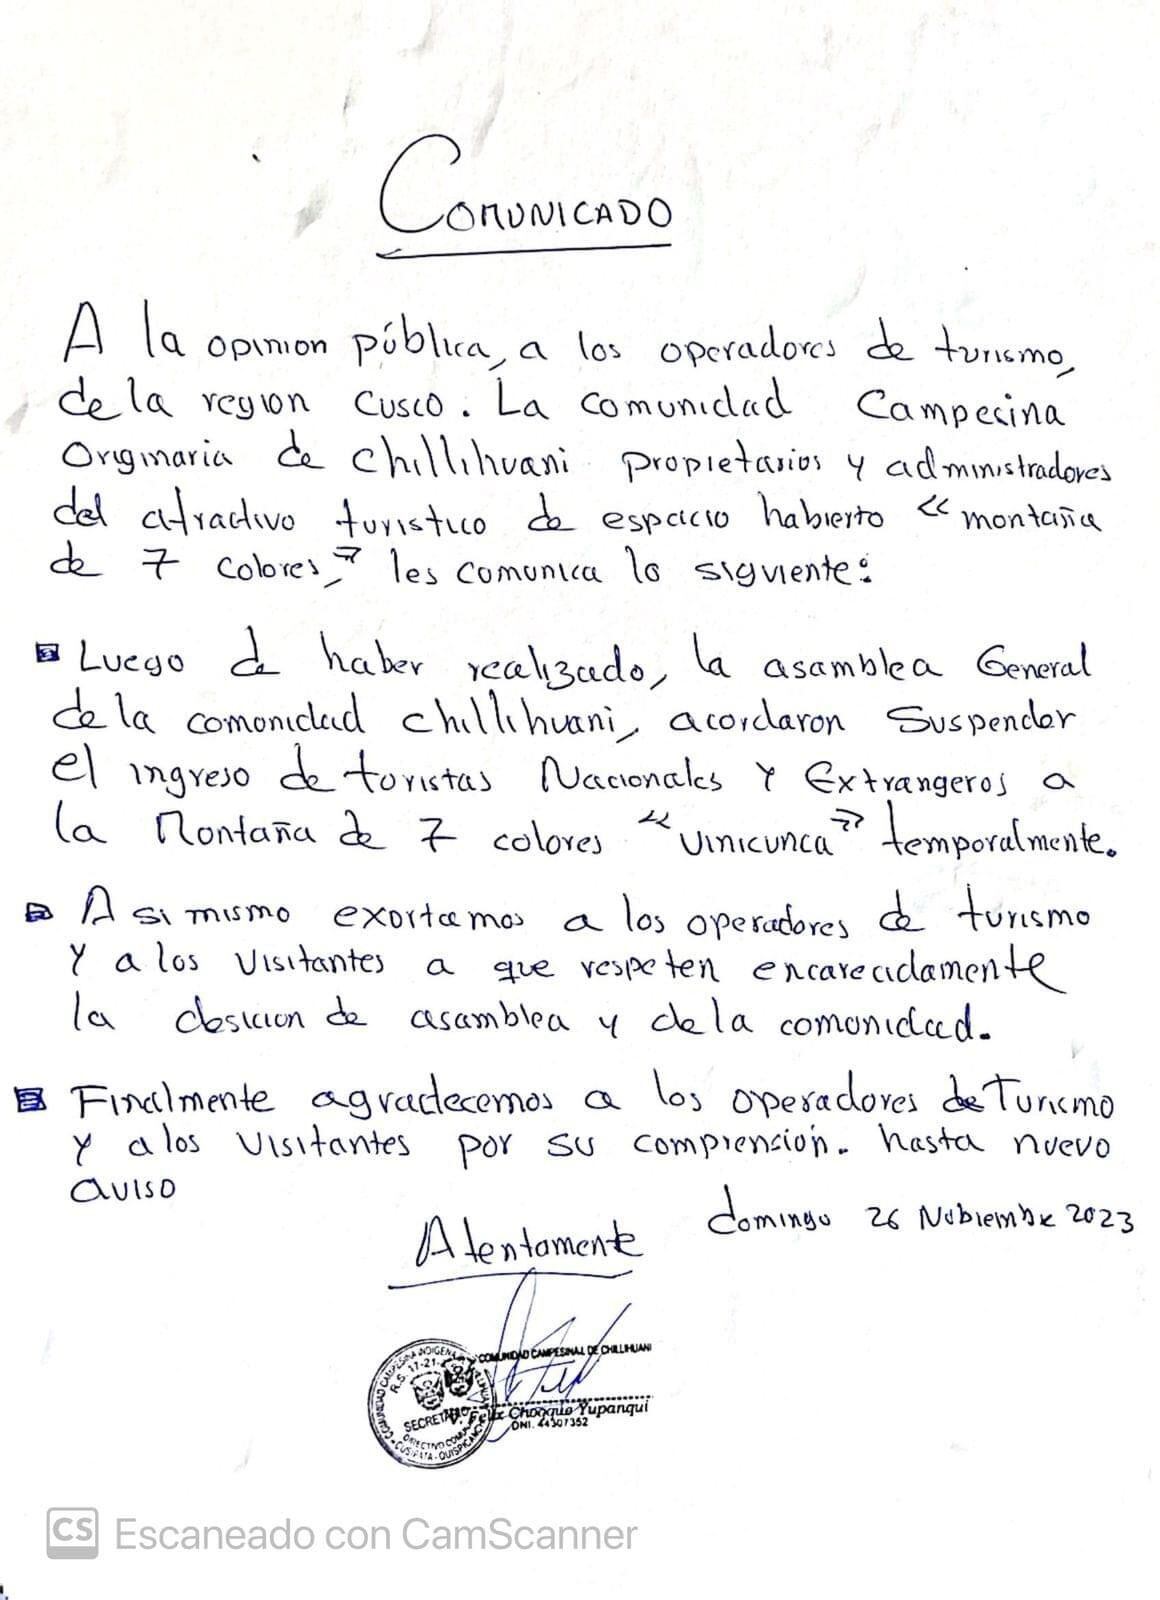 COMUNICADO
A la opinion pública, a los operadores de turismo,
de la region Cusco. La comunidad Campecina
Originaria de Chillihuani propietarios y administradores
del atractivo turistico de espacio habierto << montaña
de 7 colores,>> les comunica lo siguiente:
Luego de haber realizado, la asamblea General
de la comonidad chillihuani, acordaron Suspender
el ingreso de toristas Nacionales y Extrangeros a
la Montaña de 7 colores << vinicunca >> temporalmente.
A si mismo exortamos a los operadores de turismo
y a los visitantes a que respeten encarecidamente
la desicion de asamblea y de la comonidad.
Finalmente agradecemos a los operadores de Turismo
y a los visitantes por su comprensión. hasta nuevo
aviso
domingo 26 Nobiembre 2023
Atentamente
COMUNIDAD CAMPESINA INDIGENA
R.S. 17-21-
SECRETARIO
DIRECTIVO COMUNAL
CUSIPATA - QUISPICANCHI
COMUNIDAD CAMPESINAL DE CHILLIHUANI
Felix Choqque Yupanqui
DNI. 44307352
CS Escaneado con CamScanner